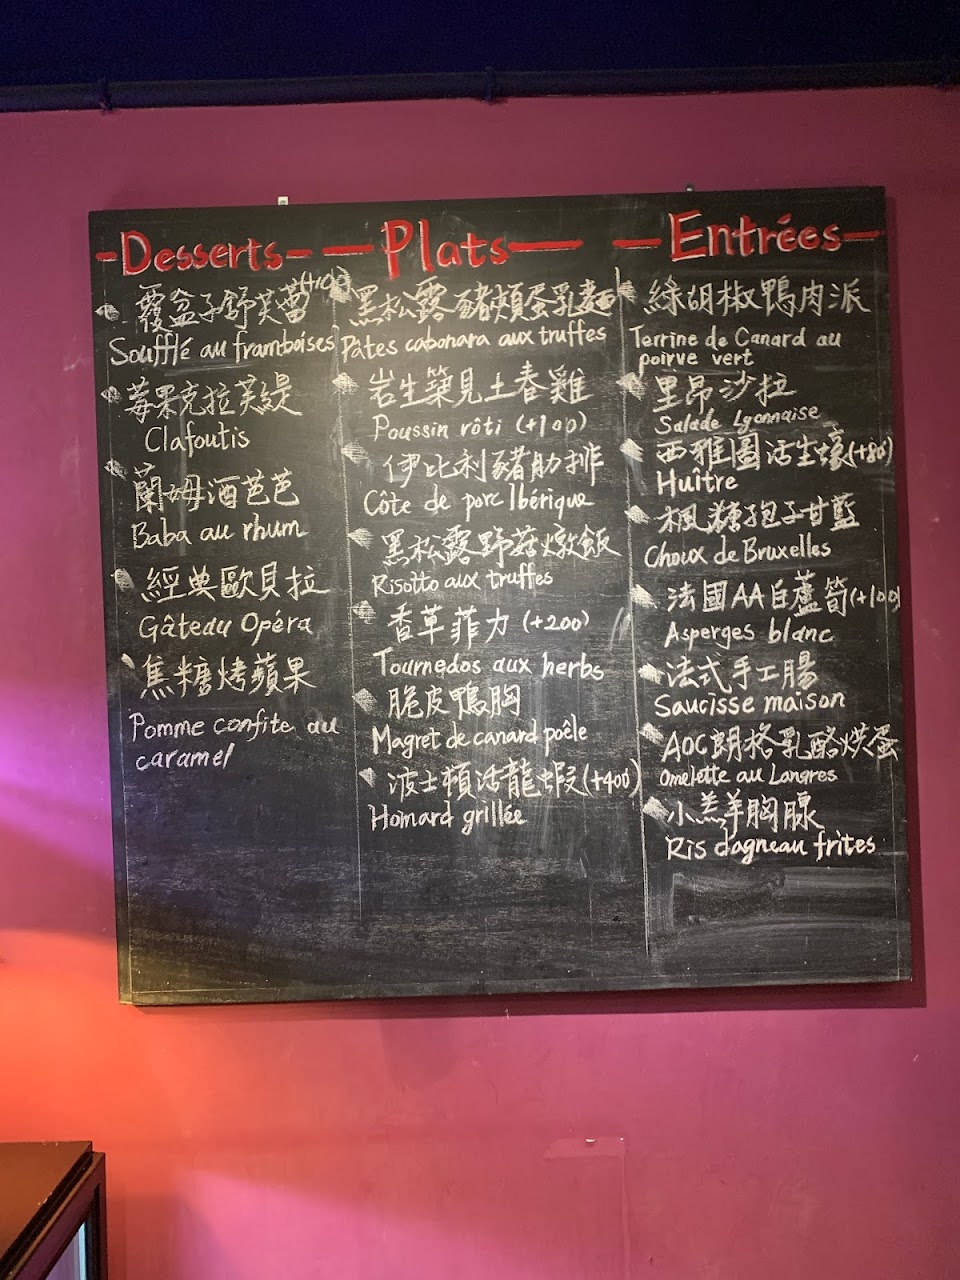 -Desserts-
覆盆子舒芙蕾(+100)
Soufflé au framboises
莓果克拉芙緹
Clafoutis
蘭姆酒芭芭
Baba au rhum
經典歐貝拉
Gâteau Opéra
焦糖烤蘋果
Pomme confite au
caramel
—Plats—
黑松露豬頰蛋乳麵
Pâtes cabonara aux truffes
岩生築見土春雞
Poussin rôti (+100)
伊比利豬肋排
Côte de porc Ibérique
黑松露野菇燉飯
Risotto aux truffes
香草菲力 (+200)
Tournedos aux herbs
脆皮鴨胸
Magret de canard poêle
波士頓活龍蝦(+400)
Homard grillée
—Entrées—
綠胡椒鴨肉派
Terrine de Canard au
poirve vert
里昂沙拉
Salade Lyonnaise
西雅圖活生蠔(+80)
Huître
楓糖孢子甘藍
Choux de Bruxelles
法國AA白蘆筍(+100)
Asperges blanc
法式手工腸
Saucisse maison
AOC朗格乳酪烘蛋
Omelette au Langres
小羔羊胸腺
Ris dagneau frites